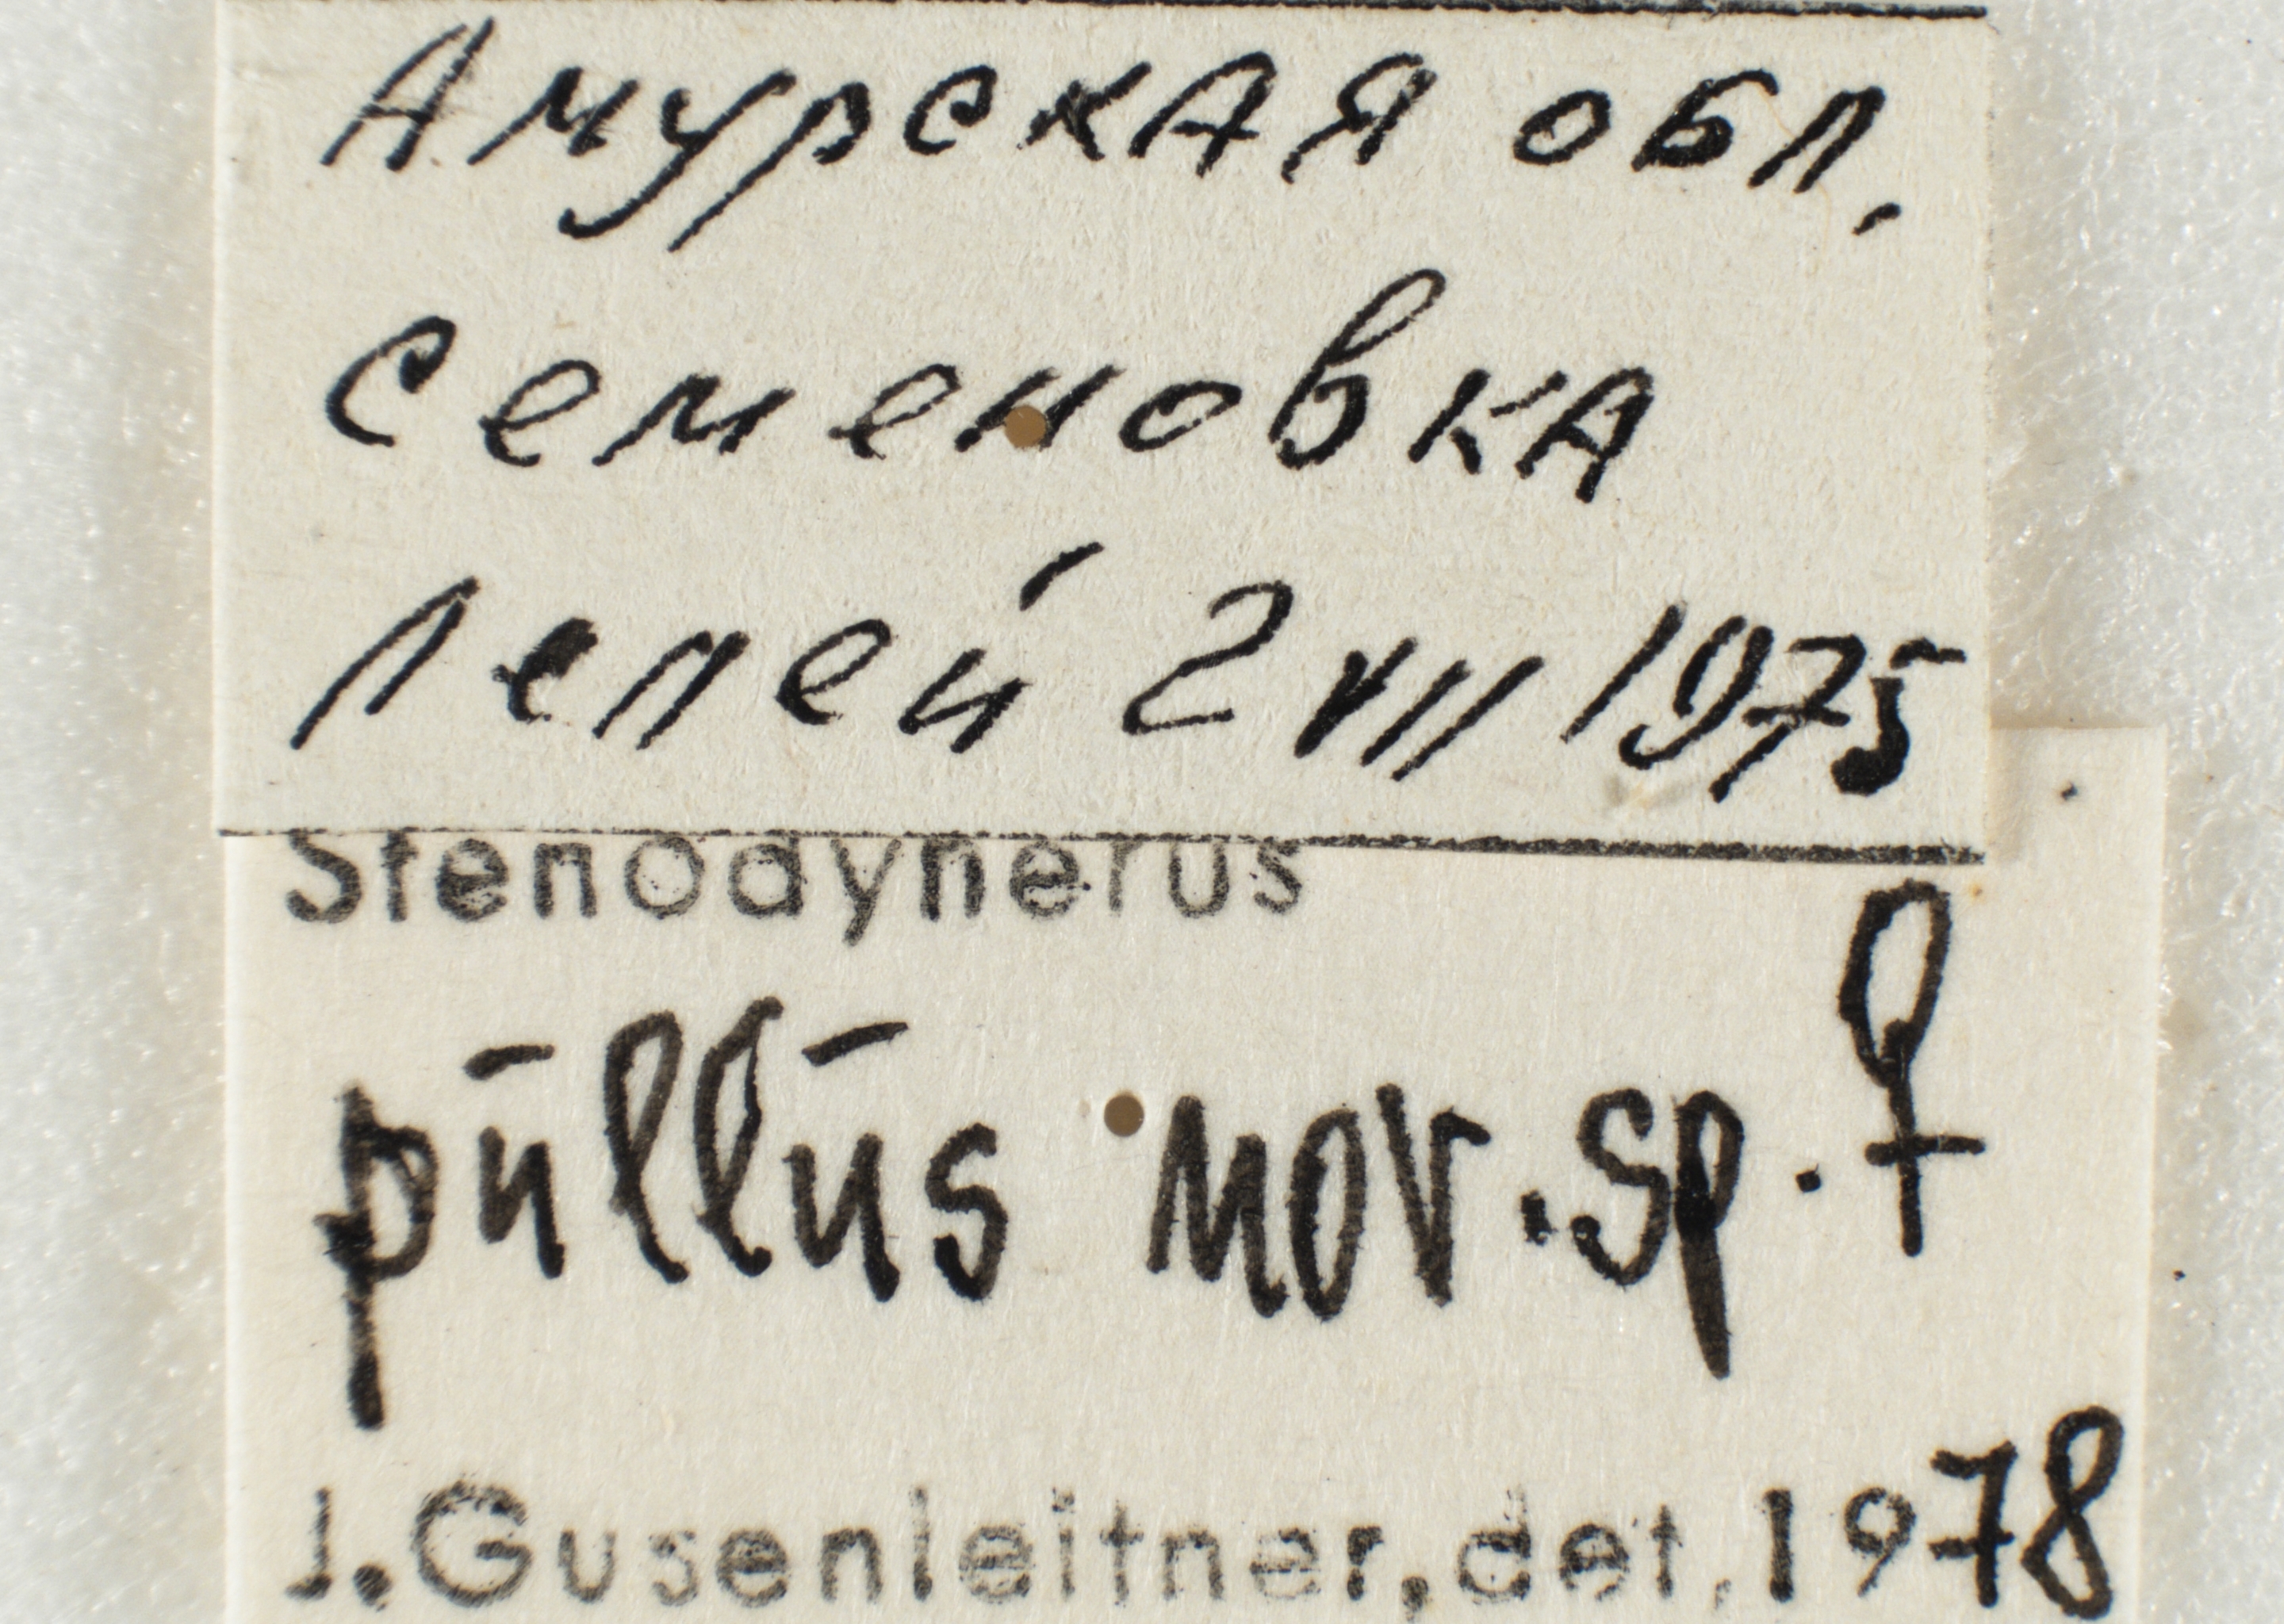 Амурская обл.
Семеновка
Лелей 2 VII 1975
Stenodynerus
pūllūs nov. sp. ♀
J. Gusenleitner, det. 1978